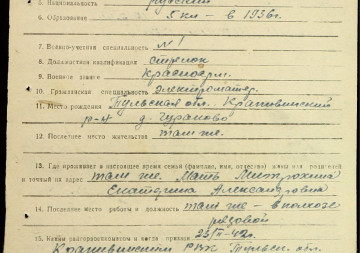 5. Национальность русский
6. Образование 5 кл - в 1936 г.
7. Военно-учетная специальность № 1
8. Должностная квалификация стрелок
9. Военное звание красноарм.
10. Гражданская специальность электромонтер.
11. Место рождения Тульская обл. Крапивинский
р-н д. Гураково
12. Последнее место жительства там же.
13. Где проживает в настоящее время семья (фамилия, имя, отчество) жены или родителей
и точный их адрес там же. Мать Митрохина
Екатерина Александровна
14. Последнее место работы и должность там же - в колхозе
рядовой
15. Каким райгорвоенкоматом и когда призван 23/II-42 г.
Крапивинским РВК Тульск. обл.